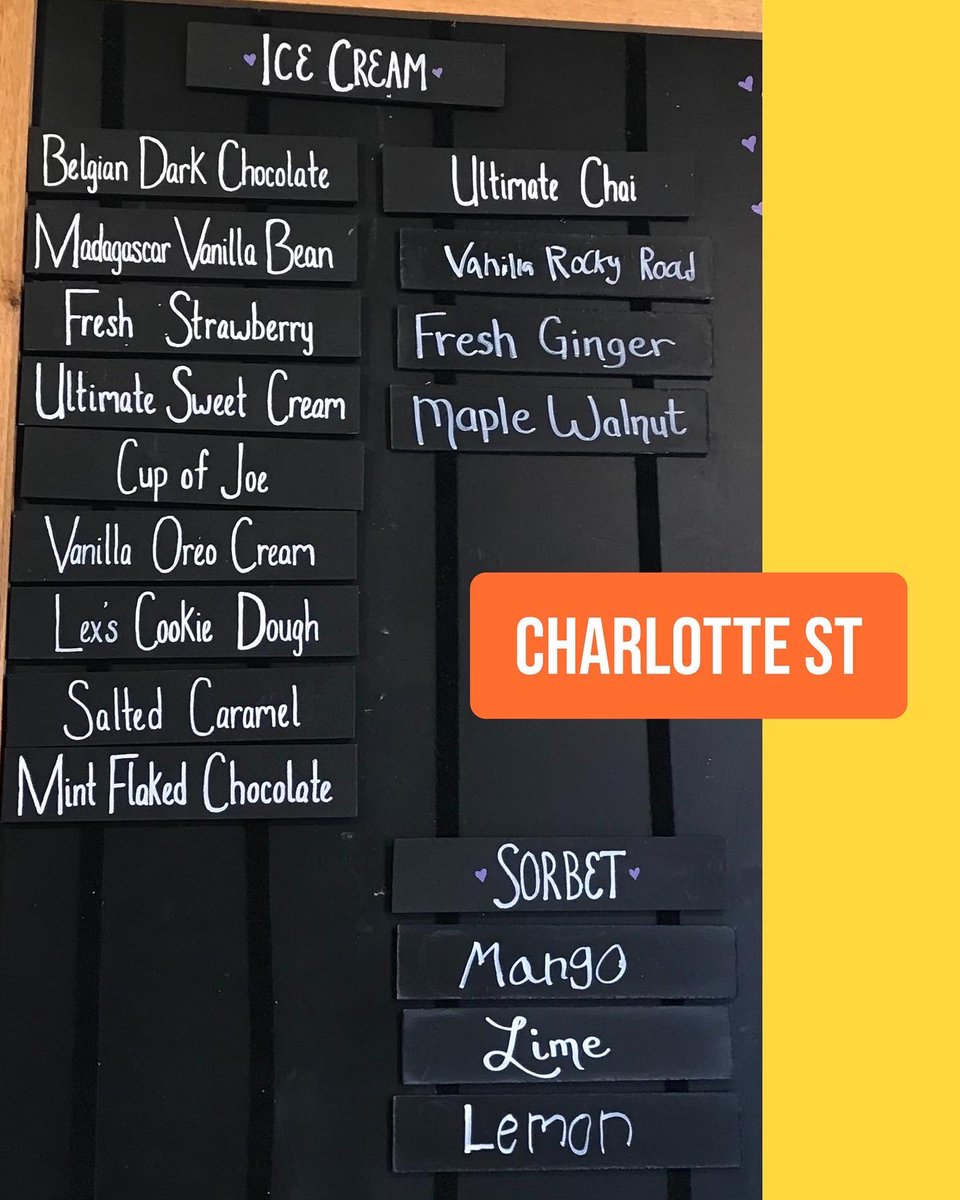 ICE CREAM
Belgian Dark Chocolate
Madagascar Vanilla Bean
Fresh Strawberry
Ultimate Sweet Cream
Cup of Joe
Vanilla Oreo Cream
Lex's Cookie Dough
Salted Caramel
Mint Flaked Chocolate
Ultimate Chai
Vanilla Rocky Road
Fresh Ginger
Maple Walnut
CHARLOTTE ST
SORBET
Mango
Lime
Lemon